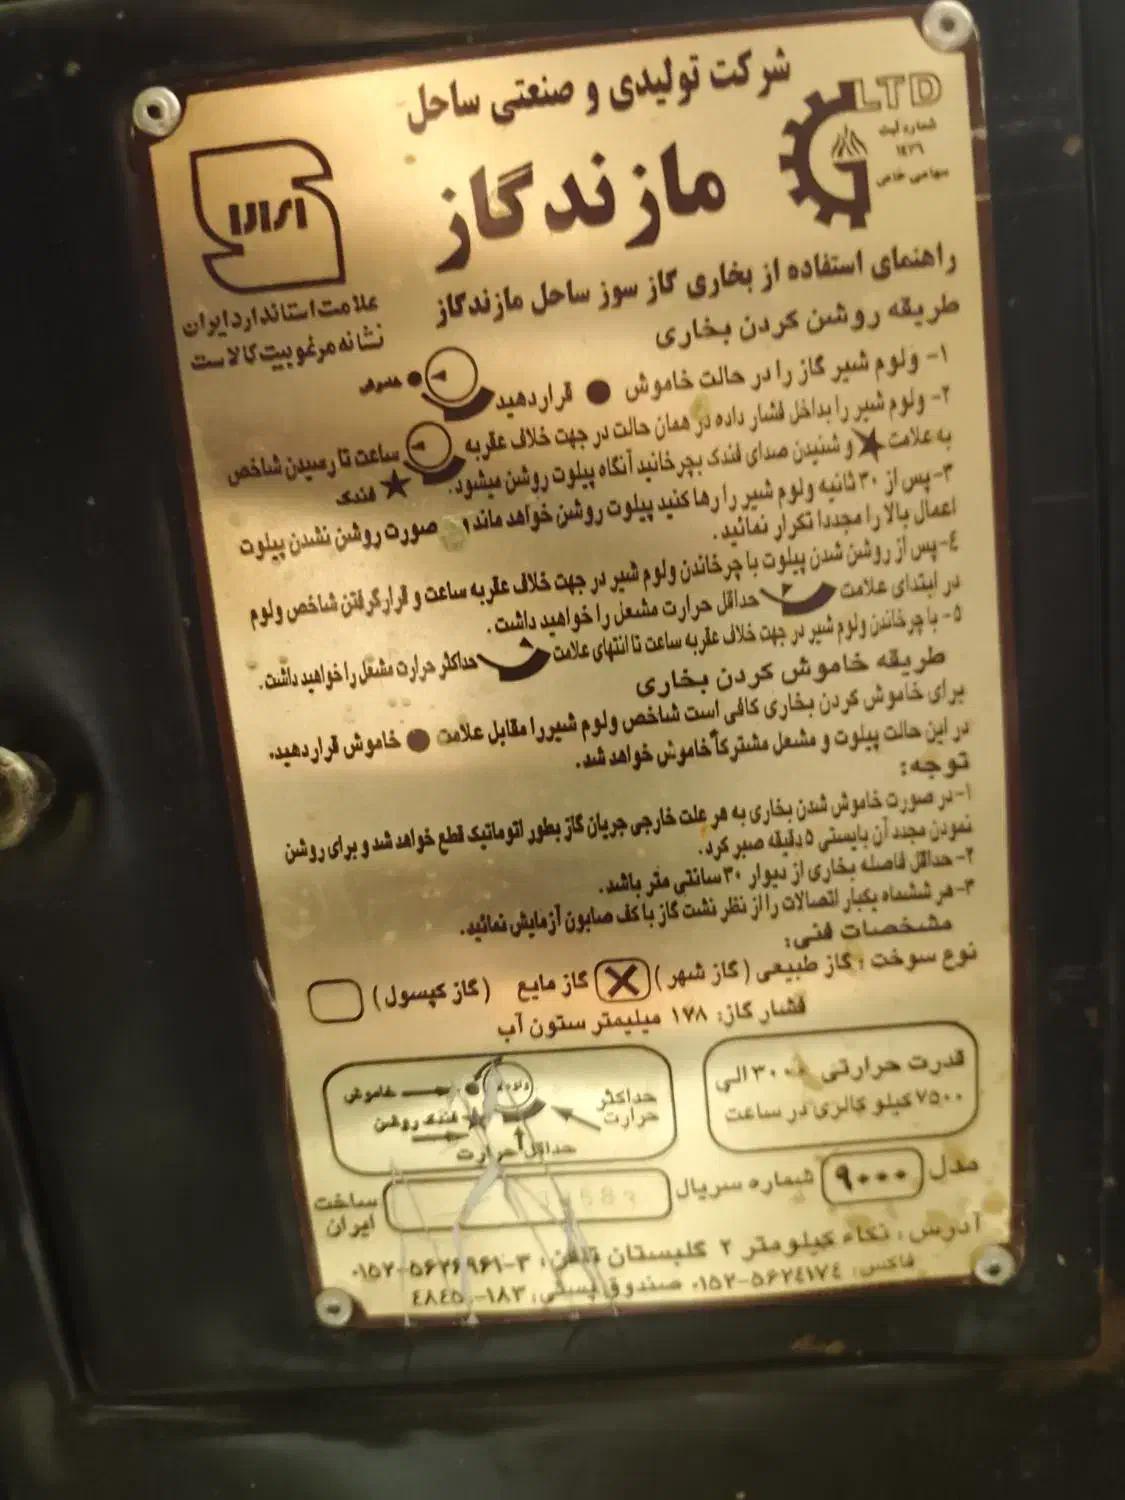 شرکت تولیدی و صنعتی ساحل
LTD
شماره ثبت
۱٤۲٦
سهامی خاص
مازندگاز
علامت استاندارد ایران
نشانه مرغوبیت کالاست
راهنمای استفاده از بخاری گاز سوز ساحل مازندگاز
طریقه روشن کردن بخاری
۱- ولوم شیر گاز را در حالت خاموش ● قرار دهید ● خاموش
۲- ولوم شیر را بداخل فشار داده در همان حالت در جهت خلاف عقربه ساعت تا رسیدن شاخص
به علامت ★ و شنیدن صدای فندک بچرخانید آنگاه پیلوت روشن میشود. ★ فندک
۳- پس از ۳۰ ثانیه ولوم شیر را رها کنید پیلوت روشن خواهد ماند و صورت روشن نشدن پیلوت
اعمال بالا را مجددا تکرار نمائید.
٤- پس از روشن شدن پیلوت با چرخاندن ولوم شیر در جهت خلاف عقربه ساعت و قرارگرفتن شاخص ولوم
در ابتدای علامت حداقل حرارت مشعل را خواهید داشت.
۵- با چرخاندن ولوم شیر در جهت خلاف عقربه ساعت تا انتهای علامت حداکثر حرارت مشعل را خواهید داشت.
طریقه خاموش کردن بخاری
برای خاموش کردن بخاری کافی است شاخص ولوم شیررا مقابل علامت ● خاموش قرار دهید.
در این حالت پیلوت و مشعل مشترکاً خاموش خواهد شد.
توجه:
۱- در صورت خاموش شدن بخاری به هر علت خارجی جریان گاز بطور اتوماتیک قطع خواهد شد و برای روشن
نمودن مجدد آن بایستی ۵ دقیقه صبر کرد.
۲- حداقل فاصله بخاری از دیوار ۳۰ سانتی متر باشد.
۳- هر ششماه یکبار اتصالات را از نظر نشت گاز با کف صابون آزمایش نمائید.
مشخصات فنی:
نوع سوخت: گاز طبیعی (گاز شهر) X گاز مایع (گاز کپسول)
فشار گاز: ۱۷۸ میلیمتر ستون آب
قدرت حرارتی ۳۰۰۰ الی
۷۵۰۰ کیلو کالری در ساعت
ولوم
خاموش
فندک روشن
حداقل حرارت
حداکثر
حرارت
مدل ۹۰۰۰ شماره سریال
ساخت
ایران
آدرس: نکاء کیلومتر ۲ گلبستان تلفن: ۳-۰۱۵۲-۵۶۲۶۹۶۱
فاکس: ۰۱۵۲-۵۶۲٤۱۷٤ صندوق پستی: ۱۸۳-٤٨٤٥٠